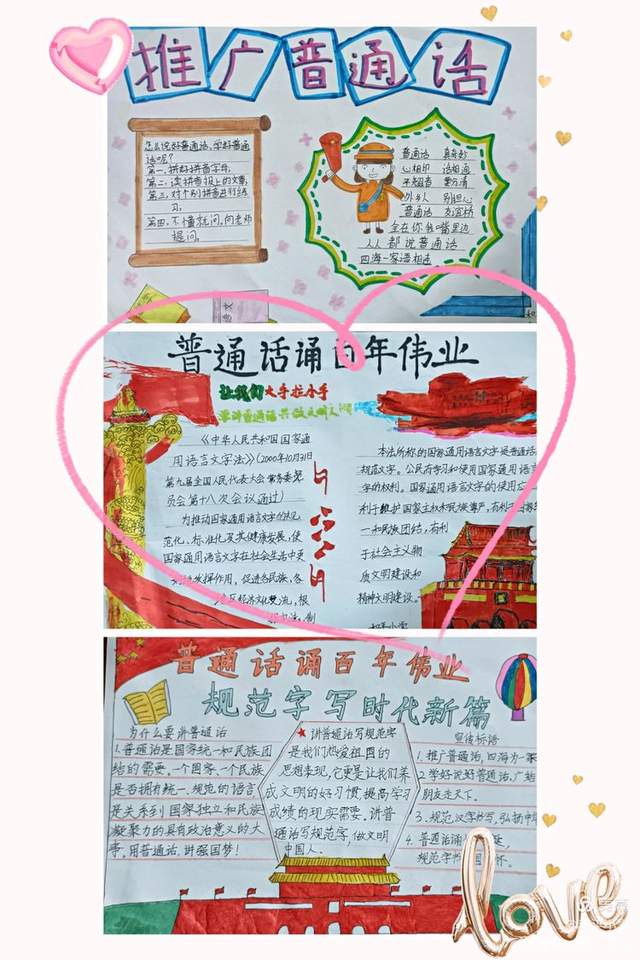 推广普通话
怎么说好普通话,学好普通
话呢?
第一、拼好拼音字母。
第二、读拼音报上的文章。
第三、对个别拼音进行练
习。
第四、不懂就问,向老师
提问。
普通话 真奇妙
心相印 话相通
平翘音 要分清
外乡人 别担心
普通话 友谊桥
全在你我嘴里边
人人都说普通话
四海一家语相连
语文
普通话诵百年伟业
让我们大手拉小手
《中华人民共和国国家通
用语言文字法》(2000年10月31日
第九届全国人民代表大会常务委
员会第十八次会议通过)
为推动国家通用语言文字的规
范化、标准化及其健康发展,使
国家通用语言文字在社会生活中更
好地发挥作用,促进各民族、各
地区经济文化交流,根
本法所称的国家通用语言文字是普通话
规范汉字。公民有学习和使用国家通用语言
文字的权利。国家通用语言文字的使用应
利于维护国家主权和民族尊严,有利于国家统
一和民族团结,有利
于社会主义物
质文明建设和
精神文明建设。
普通话诵百年伟业
规范字写时代新篇
为什么要讲普通话
1.普通话是国家统一和民族团
结的需要。一个国家、一个民族
是否拥有统一、规范的语言
是关系到国家独立和民族
凝聚力的具有政治意义的大
事。用普通话,讲强国梦!
讲普通话写规范字
是我们热爱祖国的
思想表现,它更是让我们养
成文明的好习惯提高学习
成绩的现实需要。讲普
通话写规范字,做文明
中国人。
宣传标语
1、推广普通话,四海为一家
2、学好说好普通话,广结
朋友走天下。
3、规范汉字书写,弘扬中
4、普通话诵
规范字书
love